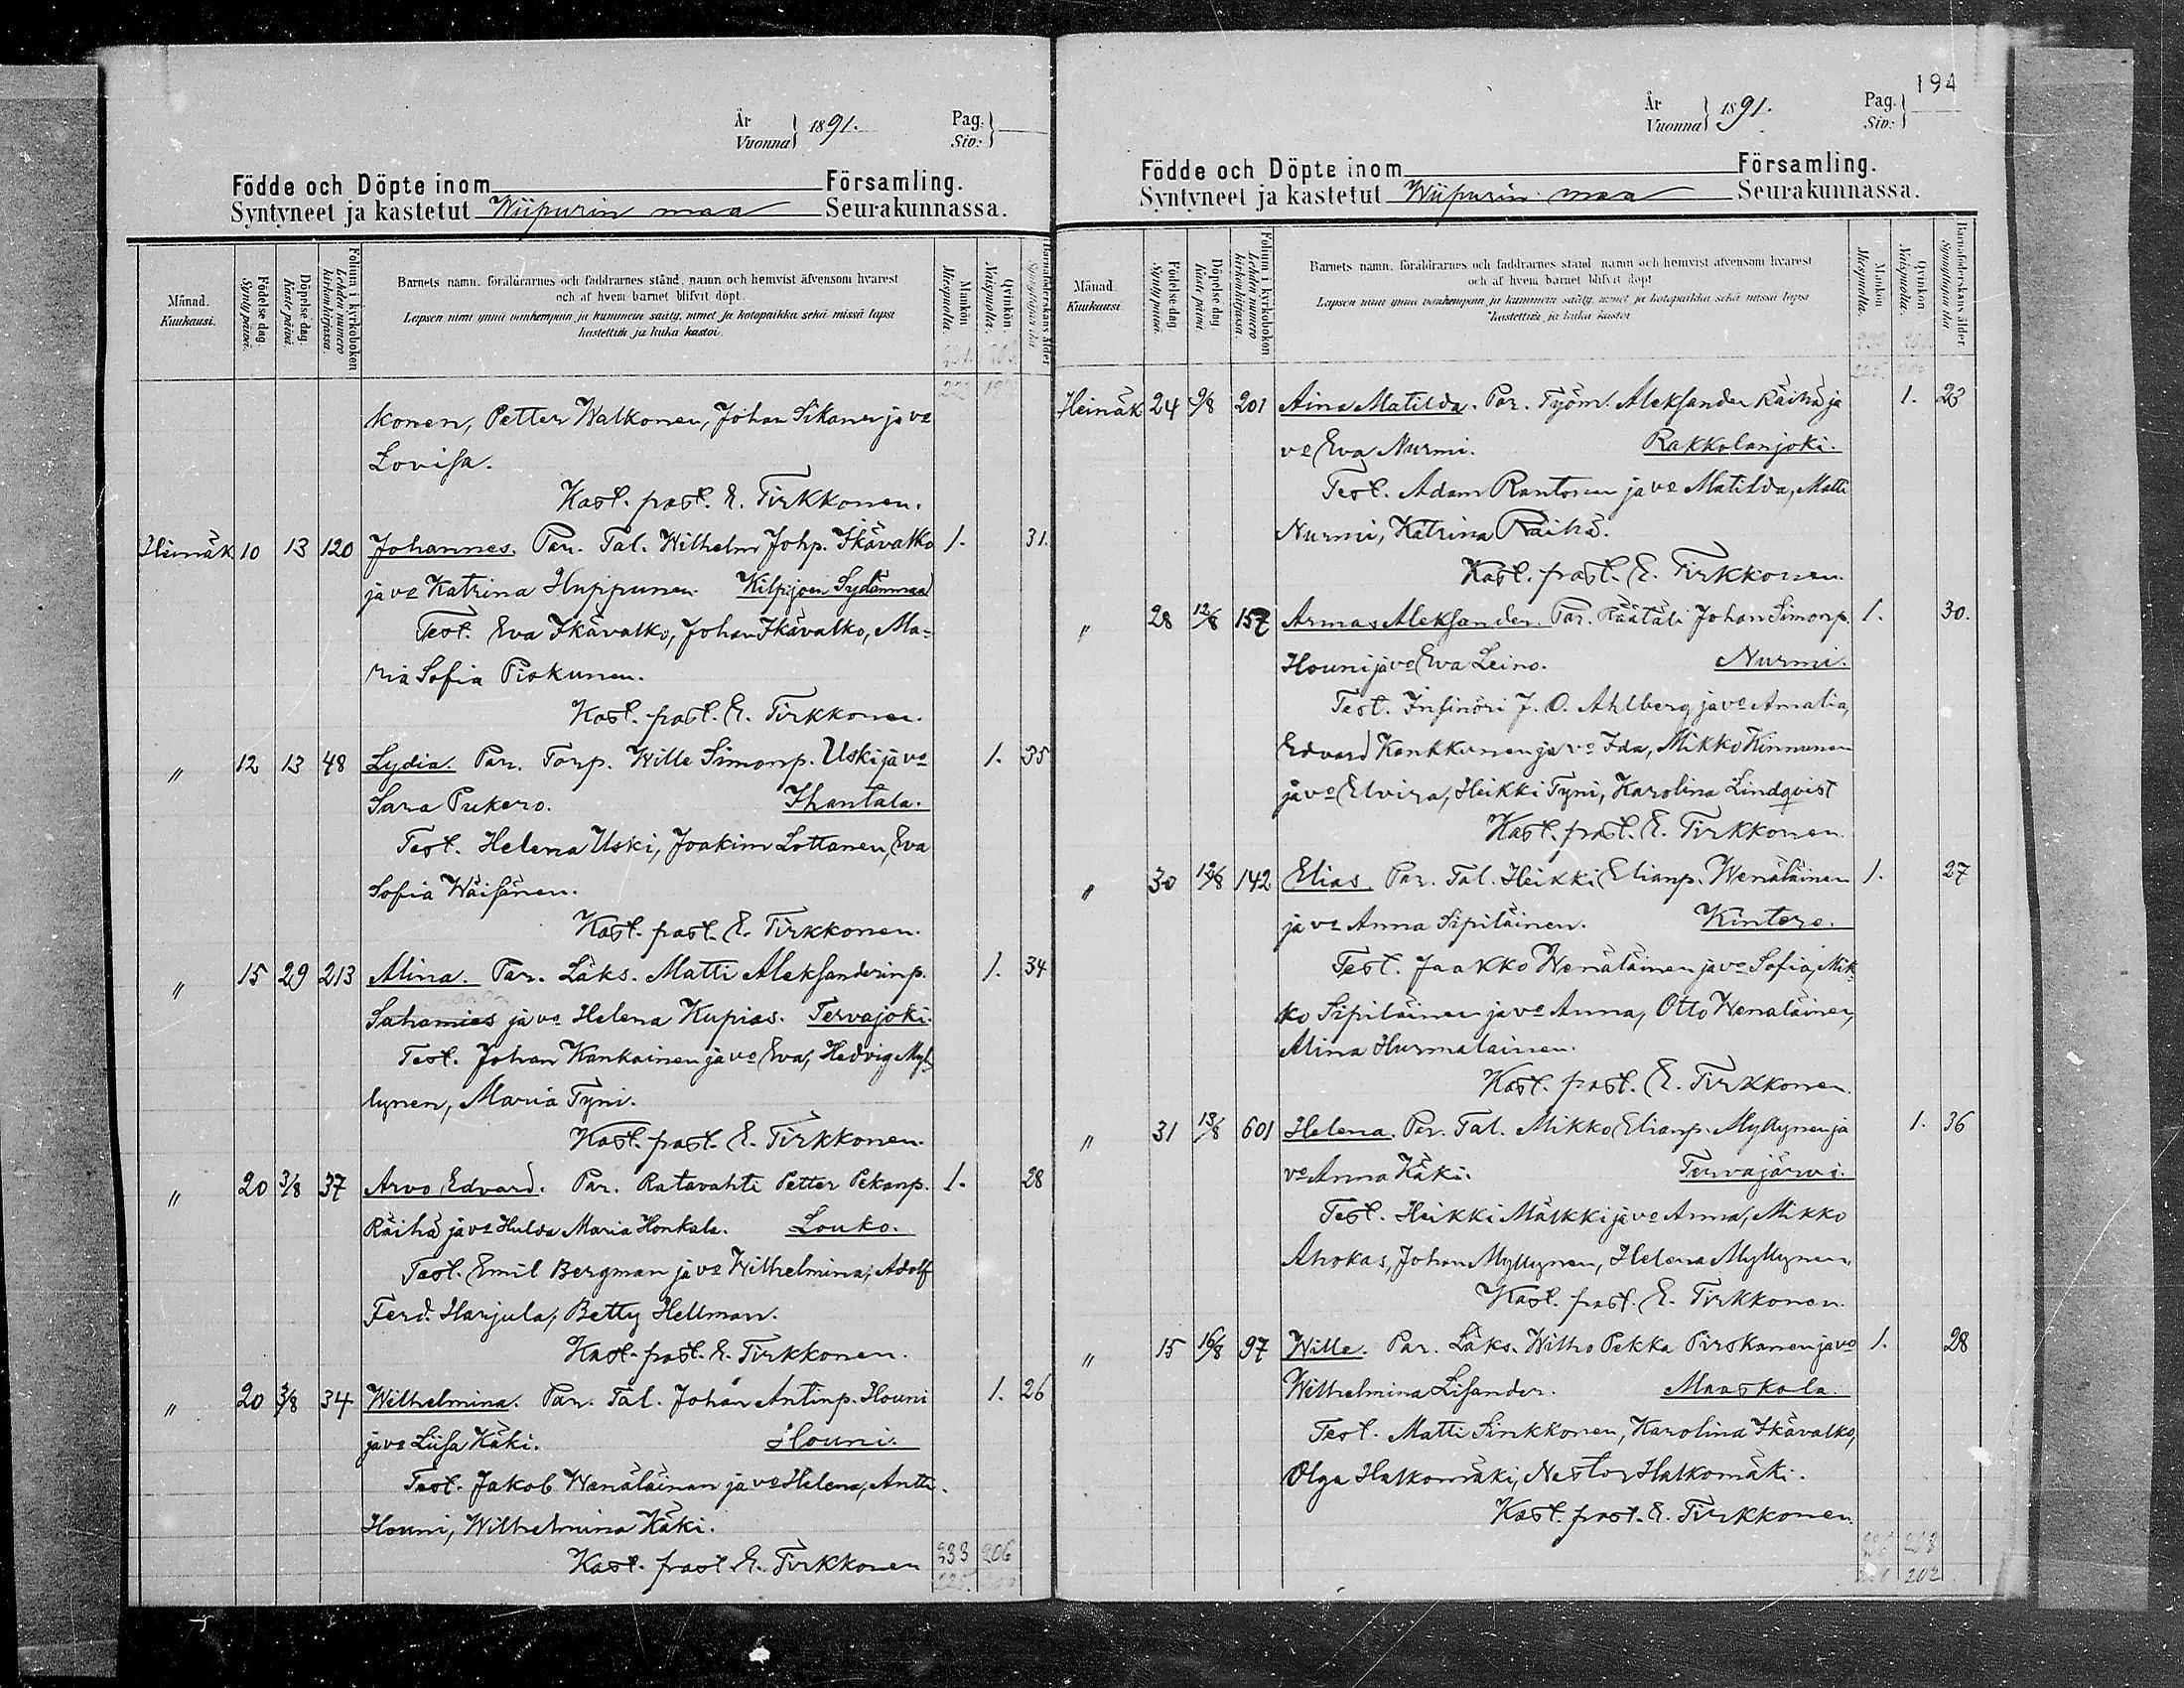 År
Vuonna } 1891.
Pag.
Siv: }
Födde och Döpte inom Församling.
Syntyneet ja kastetut Wiipurin maa Seurakunnassa.
Månad.
Kuukausi.
Födelse dag.
Synty päivä.
Döpelse dag.
Kaste päivä.
Folium i kyrkoboken
Lehden numero kirkonkirjassa.
Barnets namn, föräldrarnes och faddrarnes stånd, namn och hemvist äfvensom hvarest
och af hvem barnet blifvit döpt.
Lapsen nimi ynnä vanhempain ja kummein sääty, nimet ja kotopaikka sekä missä lapsi
kastettiin ja kuka kastoi.
Mankön.
Miespuolia.
Qvinkön.
Naispuolia.
Barnaföderskans ålder
konen, Petter Walkonen, Johan Sikanen ja vo
Lovisa.
Kast. past. E. Tirkkonen.
Heinäk 10 13 120 Johannes. Par. Tal. Wilhelm Johp. Ikävalko 1. 31.
ja vo Katrina Huppunen. Kilpijoen Sydänmaa
Test. Eva Ikävalko, Johan Ikävalko, Ma-
ria Sofia Piskunen.
Kast. past. E. Tirkkonen.
" 12 13 48 Lydia. Par. Torp. Wille Simonp. Uski ja vo 1. 35
Sara Pukero. Ihantala.
Test. Helena Uski, Joakim Lottanen, Eva
Sofia Wäisänen.
Kast. past. E. Tirkkonen.
" 15 29 213 Alina. Par. Läks. Matti Aleksanderinp. 1. 34
Sahamies ja vo Helena Kupias. Tervajoki.
Test. Johan Kankainen ja vo Eva, Hedvig Myl-
lynen, Maria Tyni.
Kast. past. E. Tirkkonen.
" 20 3/8 37 Arvo Edvard. Par. Ratavahti Petter Pekanp. 1. 28
Räihä ja vo Hulda Maria Honkala. Louko.
Test. Emil Bergman ja vo Wilhelmina, Adolf
Ferd. Harjula, Betty Hellman.
Kast. past. E. Tirkkonen.
" 20 3/8 34 Wilhelmina. Par. Tal. Johan Antinp. Houni 1. 26
ja vo Liisa Käki. Houni.
Test. Jakob Wenäläinen ja vo Helena, Antti
Houni, Wilhelmina Käki.
Kast. past. E. Tirkkonen
233 206
194
År
Vuonna } 1891.
Pag.
Siv: }
Födde och Döpte inom Församling.
Syntyneet ja kastetut Wiipurin maa Seurakunnassa.
Månad.
Kuukausi.
Födelse dag.
Synty päivä.
Döpelse dag.
Kaste päivä.
Folium i kyrkoboken
Lehden numero kirkonkirjassa.
Barnets namn, föräldrarnes och faddrarnes stånd, namn och hemvist äfvensom hvarest
och af hvem barnet blifvit döpt.
Lapsen nimi ynnä vanhempain ja kummein sääty, nimet ja kotopaikka sekä missä lapsi
kastettiin ja kuka kastoi
Mankön
Miespuolia.
Qvinkön
Naispuolia.
Barnaföderskans ålder
Synnyttäjän ikä
Heinäk 24 9/8 201 Aina Matilda. Par. Työm. Aleksander Räihä ja 1. 23
vo Eva Nurmi. Rakkolanjoki.
Test. Adam Rantonen ja vo Matilda, Matti
Nurmi, Katrina Räihä.
Kast. past. E. Tirkkonen.
" 28 12/8 157 Armas Aleksander. Par. Räätäli Johan Simonp. 1. 30.
Houni ja vo Eva Leino. Nurmi.
Test. Insinöri J. O. Ahlberg ja vo Amalia,
Edvard Kankkunen ja vo Ida, Mikko Kinnunen
ja vo Elvira, Heikki Tyni, Karolina Lindqvist
Kast. past. E. Tirkkonen.
" 30 12/8 142 Elias. Par. Tal. Heikki Elianp. Wenäläinen 1. 27
ja vo Anna Sipiläinen. Kintere.
Test. Jaakko Wenäläinen ja vo Sofia, Mik-
ko Sipiläinen ja vo Anna, Otto Wenäläinen,
Alina Hurmalainen.
Kast. past. E. Tirkkonen.
" 31 13/8 601 Helena. Par. Tal. Mikko Elianp. Myllynen ja 1. 36
vo Anna Käki. Tervajärwi.
Test. Heikki Mälkki ja vo Anna, Mikko
Ahokas, Johan Myllynen, Helena Myllynen.
Kast. past. E. Tirkkonen.
" 15 16/8 97 Wille. Par. Läks. Wilho Pekka Pirskanen ja vo 1. 28
Wilhelmina Lisander. Maaskola.
Test. Matti Sinkkonen, Karolina Ikävalko,
Olga Halkomäki, Nestor Halkomäki.
Kast. past. E. Tirkkonen.
202